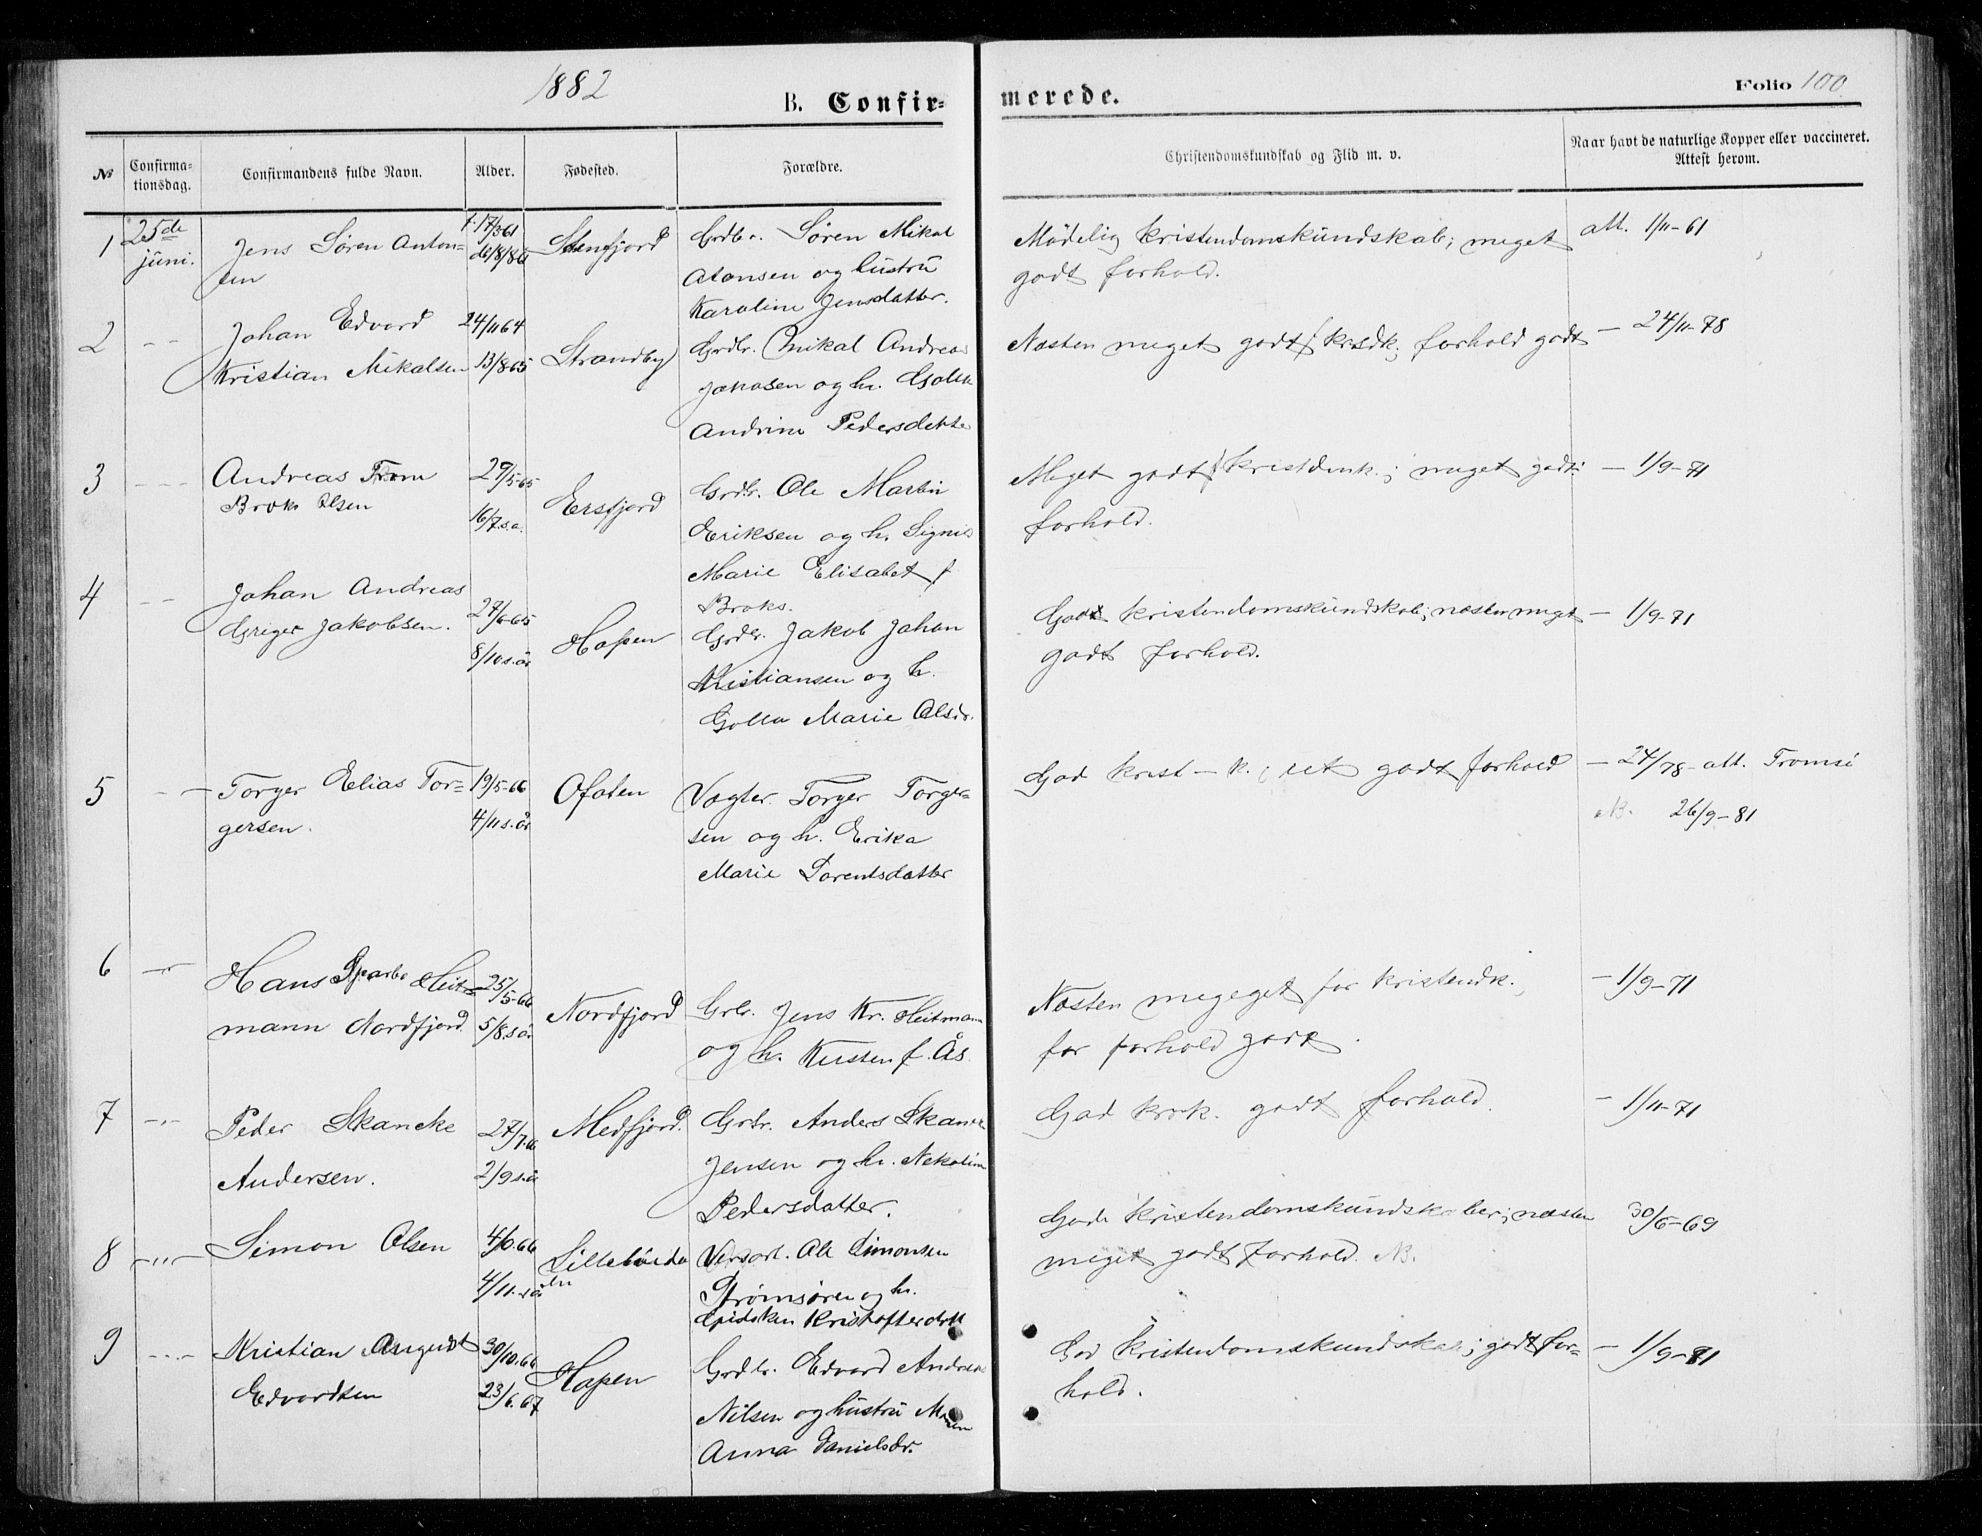 1882
B. Confir-
merede.
Folio 100.
No
Confirma-
tionsdag.
Confirmandens fulde Navn.
Alder.
Fødested.
Forældre.
Christendomskundskab og Flid m. v.
Naar havt de naturlige Kopper eller vaccineret.
Attest herom.
1 25de juni. Jens Søren Anton-
sen
Stenfjord
Grdbr. Søren Mikal
Antonsen og hustru
Karoline Jensdatter.
Mådelig kristendomskundskab; meget
godt forhold.
att. 1/11-61
2 - - Johan Edvard
Kristian Mikalsen
24/11 64
13/8 65
Strandby
Grdbr. Mikal Andreas
Jakobsen og h.
Andrine Pedersdatter
Næsten meget godt f krsdk; forhold godt
- 24/11-78
3 - - - Andreas From
Broks Olsen
29/5-65
16/7 s.a.
Ersfjord
Grdbr. Ole Martin
Eriksen og h. Signis
Marie Elisabet f
Broks.
Meget godt f kristdmk.; meget godt
forhold.
- 1/9-71
4 - - Johan Andreas
Griger Jakobsen.
27/6-65
8/10 s. år
Hopen
Grdbr. Jakob Johan
Kristiansen og h.
Golla Marie Olsdr.
Godt kristendomskundskab; næsten meget
godt forhold.
- 1/9-71
5 - - Torger Elias Tor-
gersen.
19/5-66
4/11 s. år
Ofoten
Vogter Torger Torger-
sen og h. Erika
Marie Lorentsdatter
God krist-k.; ret godt forhold
- 24/78- att. Tromsö
NB. 26/9-81
6 - - Hans Sparbo Heit-
mann Nordfjord
25/5-66
5/8 s år
Nordfjord
Grbr. Jens Kr. Heitmann
og h. Kirsten f. Ås.
Næsten megeget for kristendk.,
for forhold godt.
- 1/9-71
7 - - Peder Skancke
Andersen.
27/7 66
2/9 s. å
Medfjord.
Grbr. Anders Skancke
Jensen og h. Nekoline
Pedersdatter.
God krsk. godt forhold.
- 1/11-71
8 - - Simon Olsen
4/6 66
4/11 s å
Grdbr. Ole Simonsen
Strømsøren og h.
Kristofferdatt
Gode kristendomskundskaber; næsten
meget godt forhold. NB.
30/6-69
9 - - Kristian Angust
Edvardsen
30/10-66
23/6 67
Hopen
Grdbr. Edvard Andreas
Nilsen og hustru Maren
Anna Danielsdr.
God kristendomskundskab; godt for-
hold.
- 1/9-81